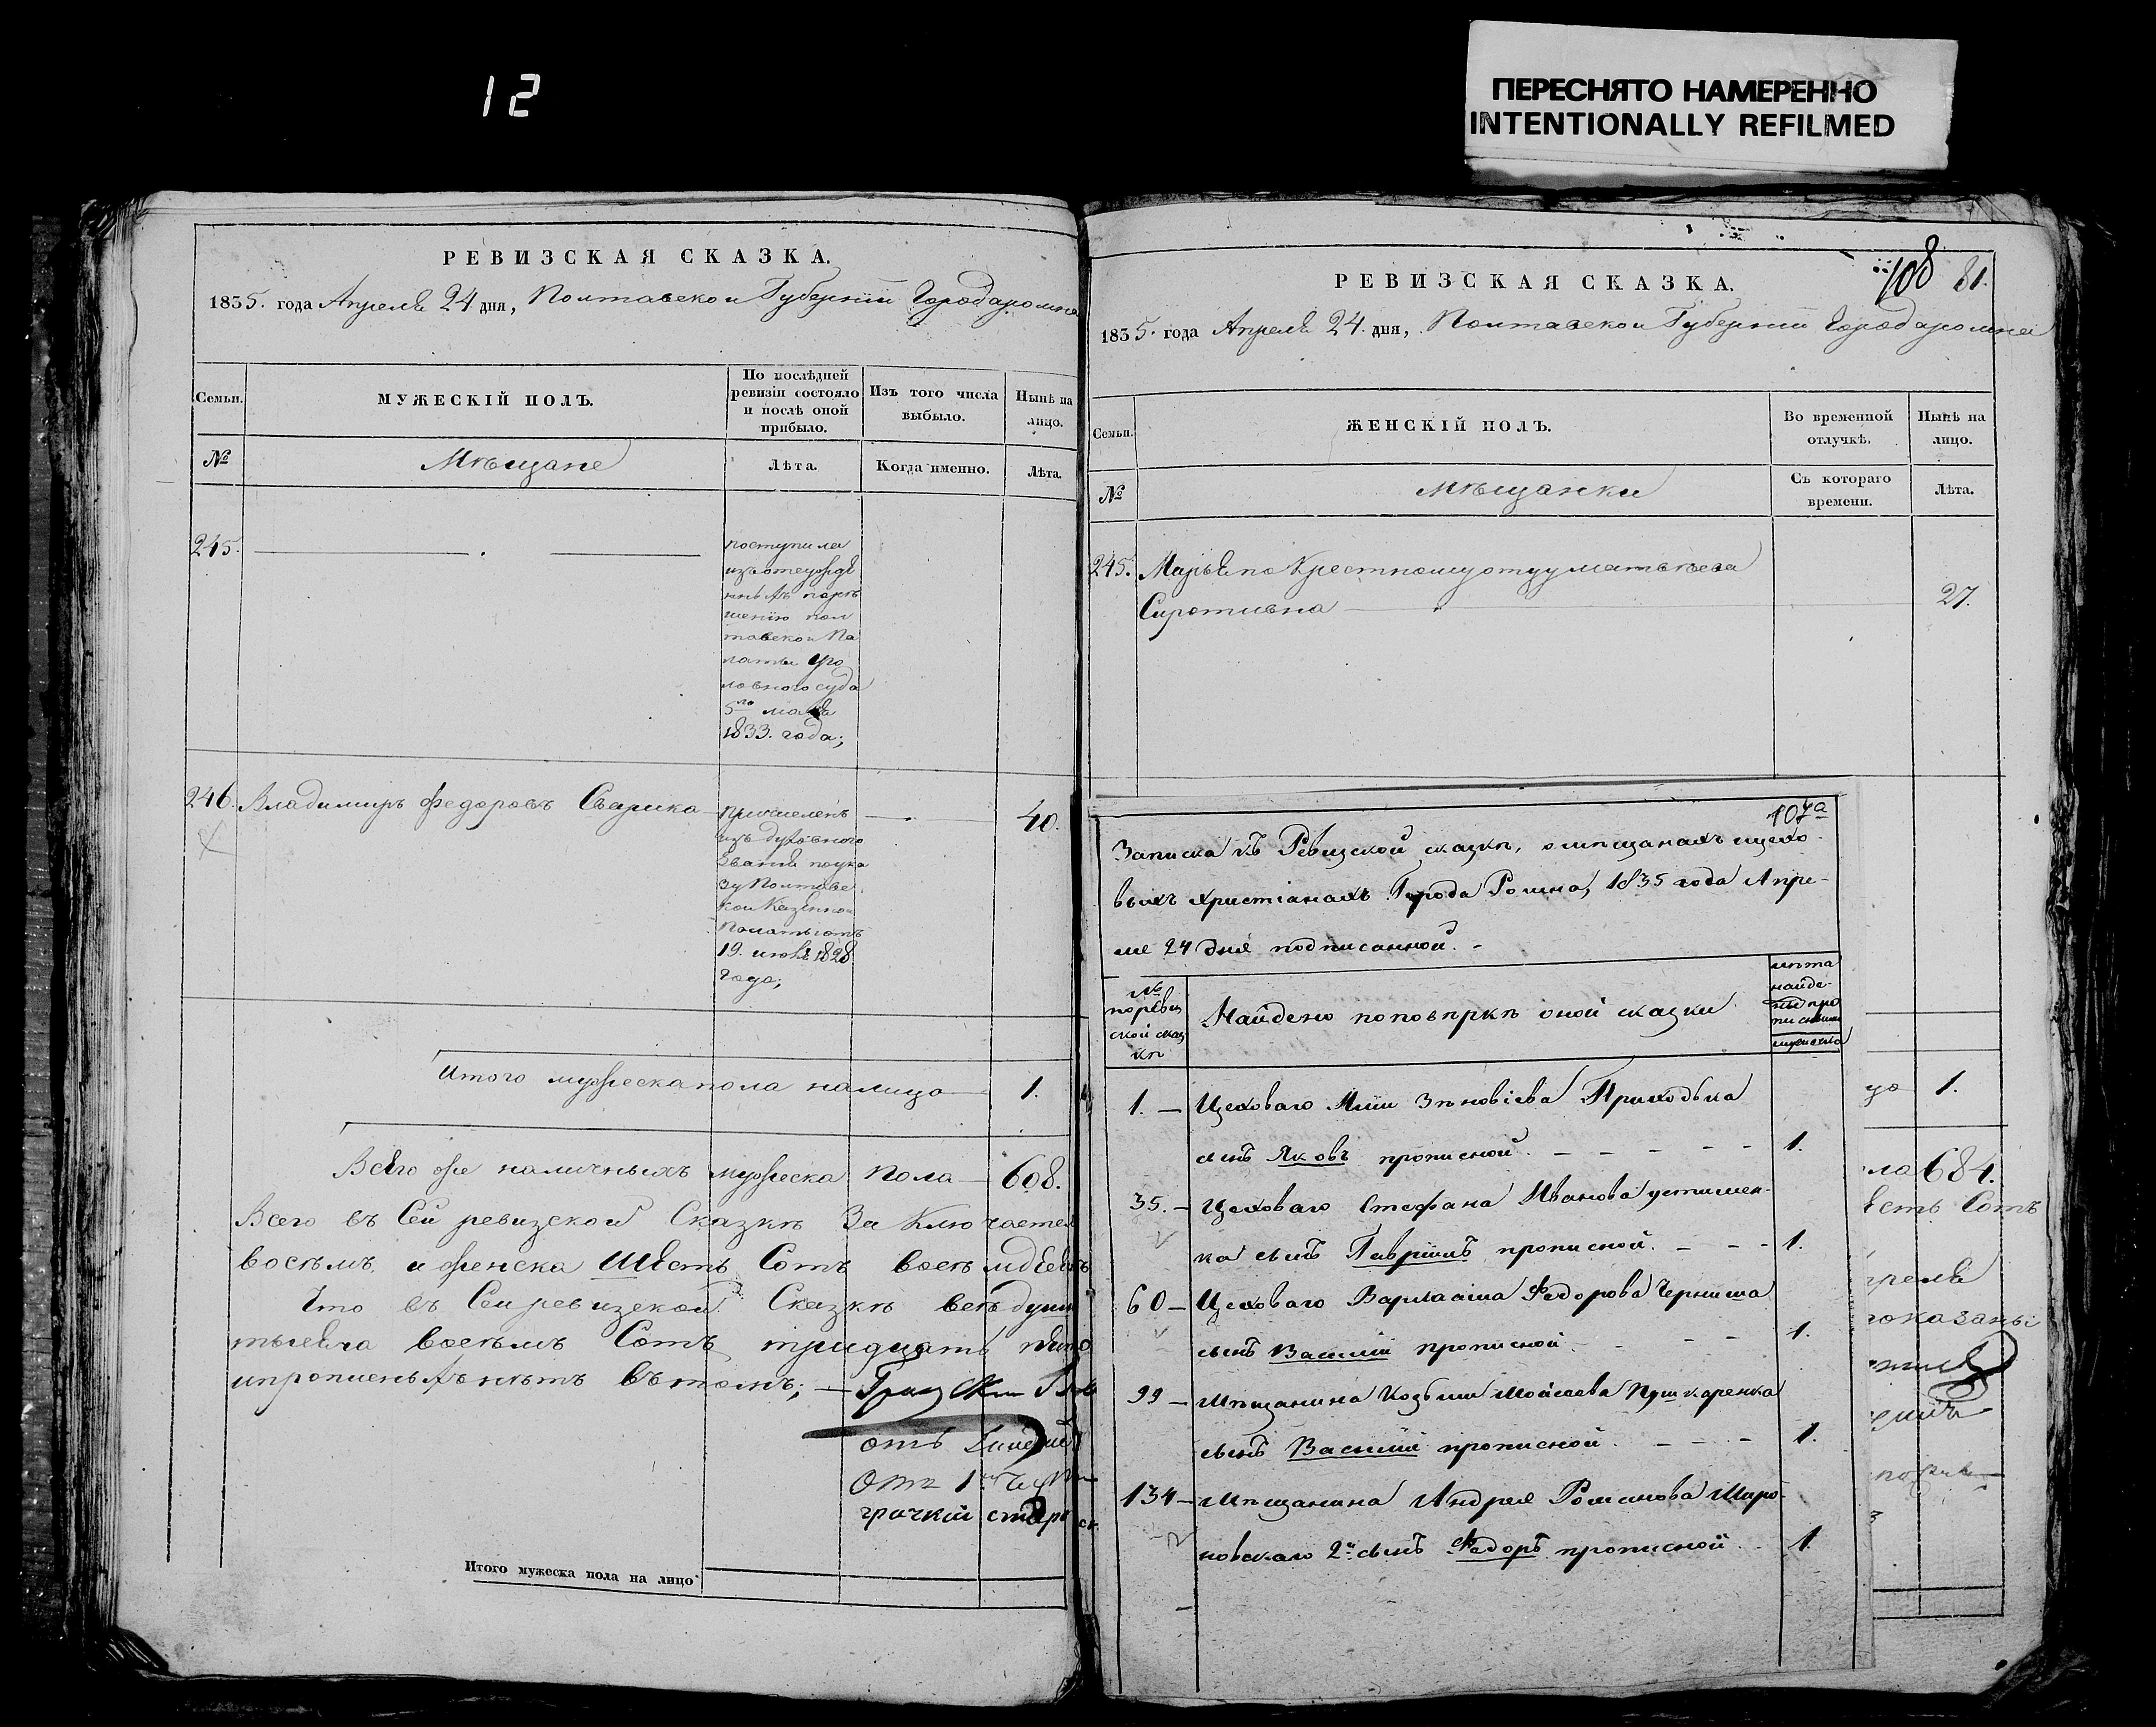 12
ПЕРЕСНЯТО НАМЕРЕННО
INTENTIONALLY REFILMED
РЕВИЗСКАЯ СКАЗКА.
1835. года Апреля 24 дня, Полтавской Губерніи Города Ромна
Семьи.
МУЖЕСКІЙ ПОЛЪ.
По послѣдней ревизіи состояло и послѣ оной прибыло.
Изъ того числа выбыло.
Нынѣ на лицо.
№
Мѣщане
Лѣта.
Когда именно.
Лѣта.
245.
поступила
шенію Пол
тавской Па
латы Уго
ловного суда
5го мая
1833. года;
246. Владимиръ Федоровъ Сварика
40.
причисленъ
изъ духовного
званія по ука
зу Полтавс
кой Казенной
Палаты отъ
19. июня 1828
года;
Итого мужеска пола на лицо 1.
Всего же наличныхъ мужеска пола 608.
Всего въ Сей ревизской Сказкѣ Заключается
восѣмъ, и женска Шесть Сотъ восѣмдѣсятъ
Что въ Сей ревизской Сказкѣ всѣ души
восѣмъ Сотъ тридцать
и прописныхъ нѣтъ въ томъ; —
Итого мужеска пола на лицо
РЕВИЗСКАЯ СКАЗКА.
108 81.
1835. года Апреля 24. дня, Полтавской Губерніи Города Ромна
Семьи.
ЖЕНСКІЙ ПОЛЪ.
Во временной отлучкѣ.
Нынѣ на лицо.
№
Мѣщанки
Съ котораго времени.
Лѣта.
245. Марья по Крестному отцу Матвѣева
Сиротивна 27.
107а
Записка къ Ревизской сказкѣ, о мѣщанахъ и цехо-
выхъ христіанахъ Города Ромна, 1835 года Апре-
ля 24 дня подписанной. -
№ по ревиз
ской сказ
кѣ
Найдено по повѣркѣ оной сказки
лѣта
найде-
ны про
писными
мужеска
1. — Цеховаго Ильи Зѣновіева Приходька
сынъ Яковъ прописной. 1.
35. — Цеховаго Стефана Иванова Устимен-
ка сынъ Гавріилъ прописной. 1.
60 — Цеховаго Варлаама Федорова Черниша
сынъ Василій прописной. 1.
99 — Мѣщанина Козьми Мойсеева Пушкаренка
сынъ Василій прописной. 1.
134 — Мѣщанина Андрея Романова Миро-
новскаго 2й сынъ Федоръ прописной. 1.
1.
684.
Сотъ